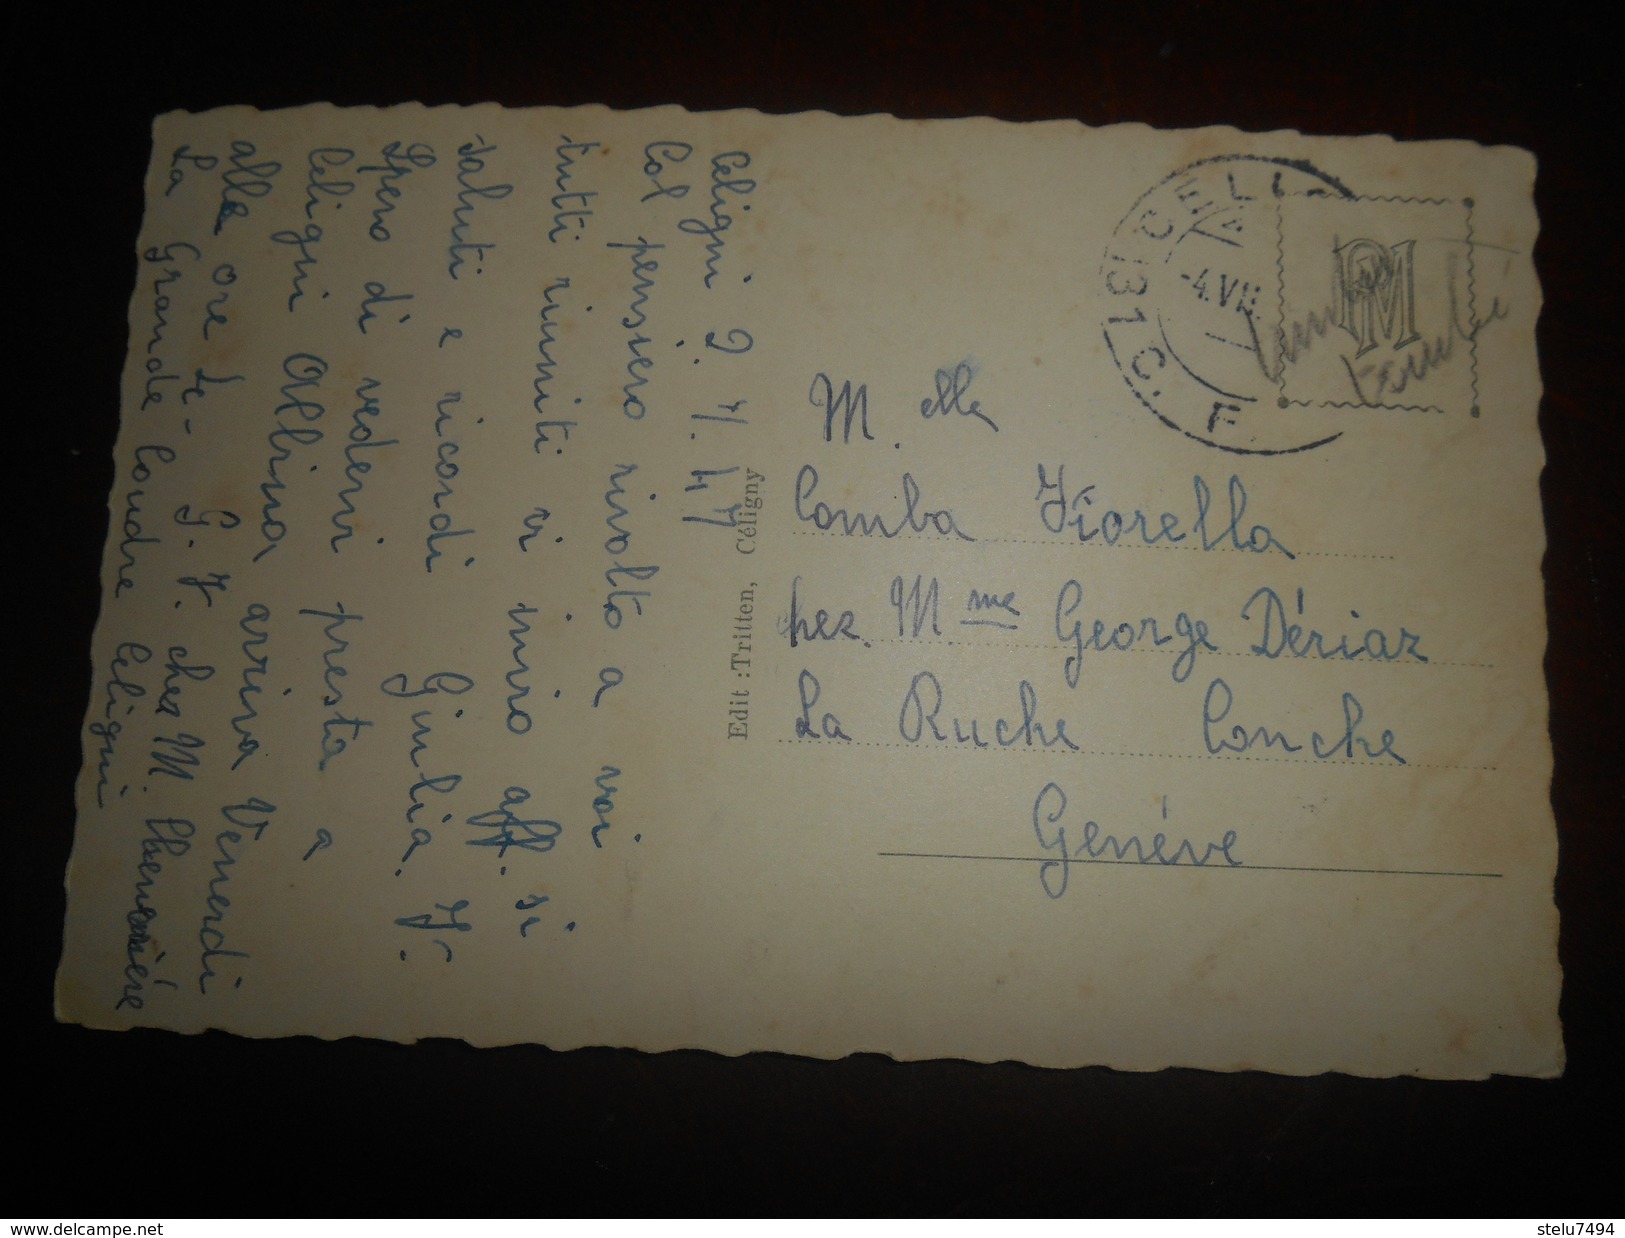 Céligni 2.7.47
Col pensiero rivolto a voi
tutti riuniti vi invio aff. si
saluti e ricordi Giulia. F.
Spero di vedervi presto a
Céligni Albina arriva Venerdì
alle ore
La Grande Coudre Céligni
G. F. chez M.
Edit : Tritten, Céligny
M.elle
Comba Fiorella
chez Mme George Dériaz
La Ruche Conche
Genéve
CELI
-4.VII
C. F.
PM
delcampe.net
stelu7494